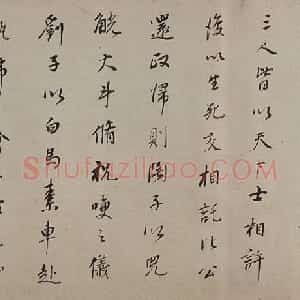 三人皆以天下士相許
後以生死交相託沈公
還政歸則陶子以兕
觥大斗脩祝哽之儀
劉子以白馬素車赴
Shufaziliao.com